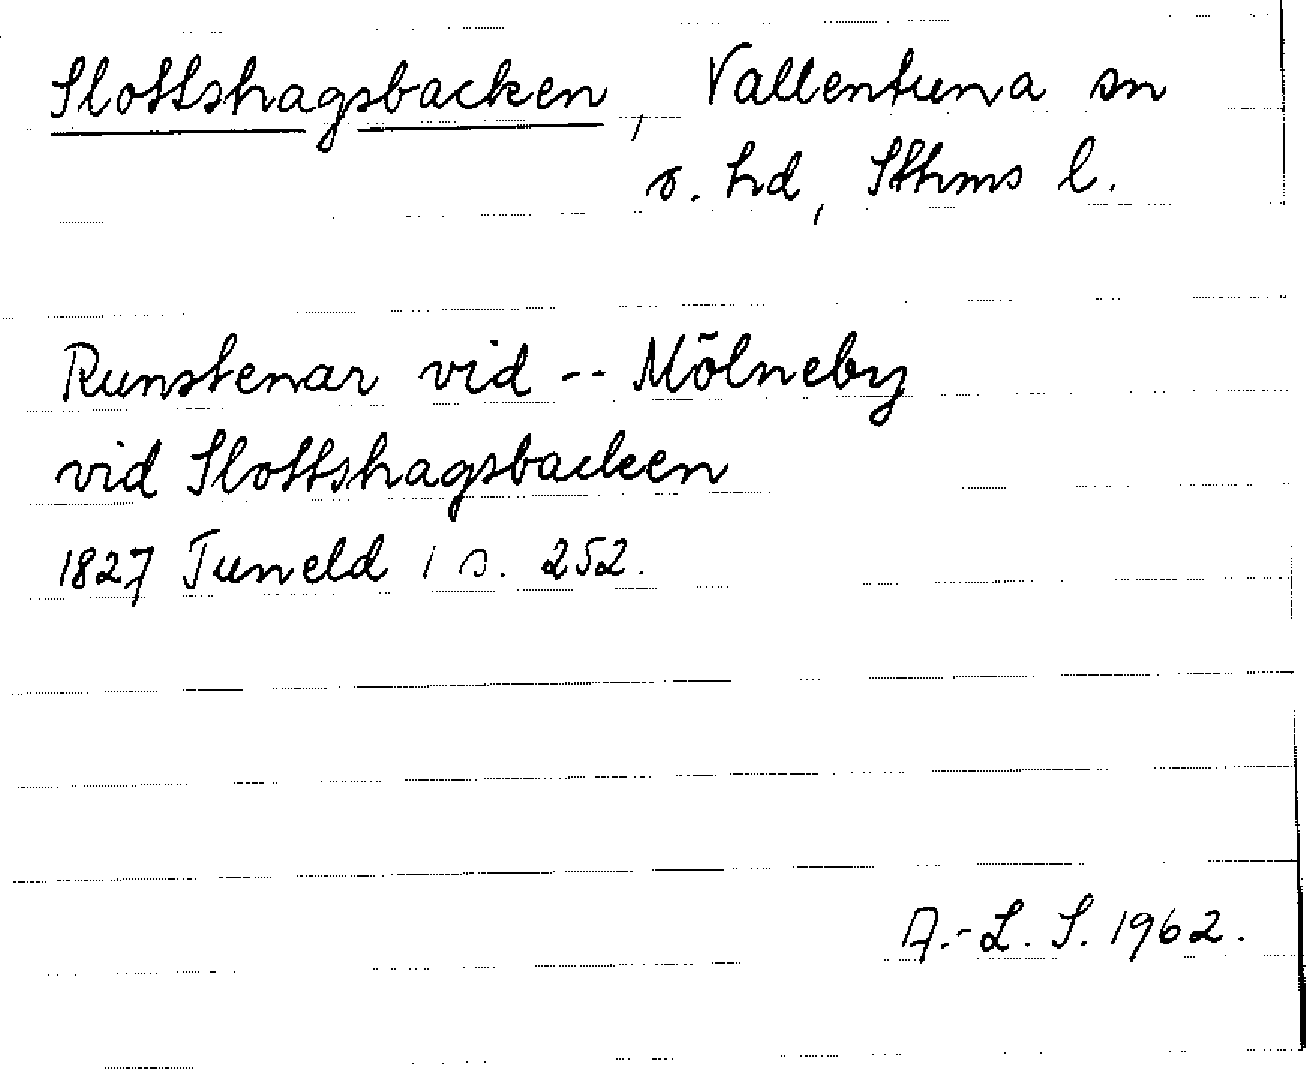 Slottshagsbacken, Vallentuna sn
o. hd, Sthms l.
Runstenar vid -- Mölneby
vid Slottshagsbacken
1827 Tuneld 1 s. 252.
A.-L. S. 1962.